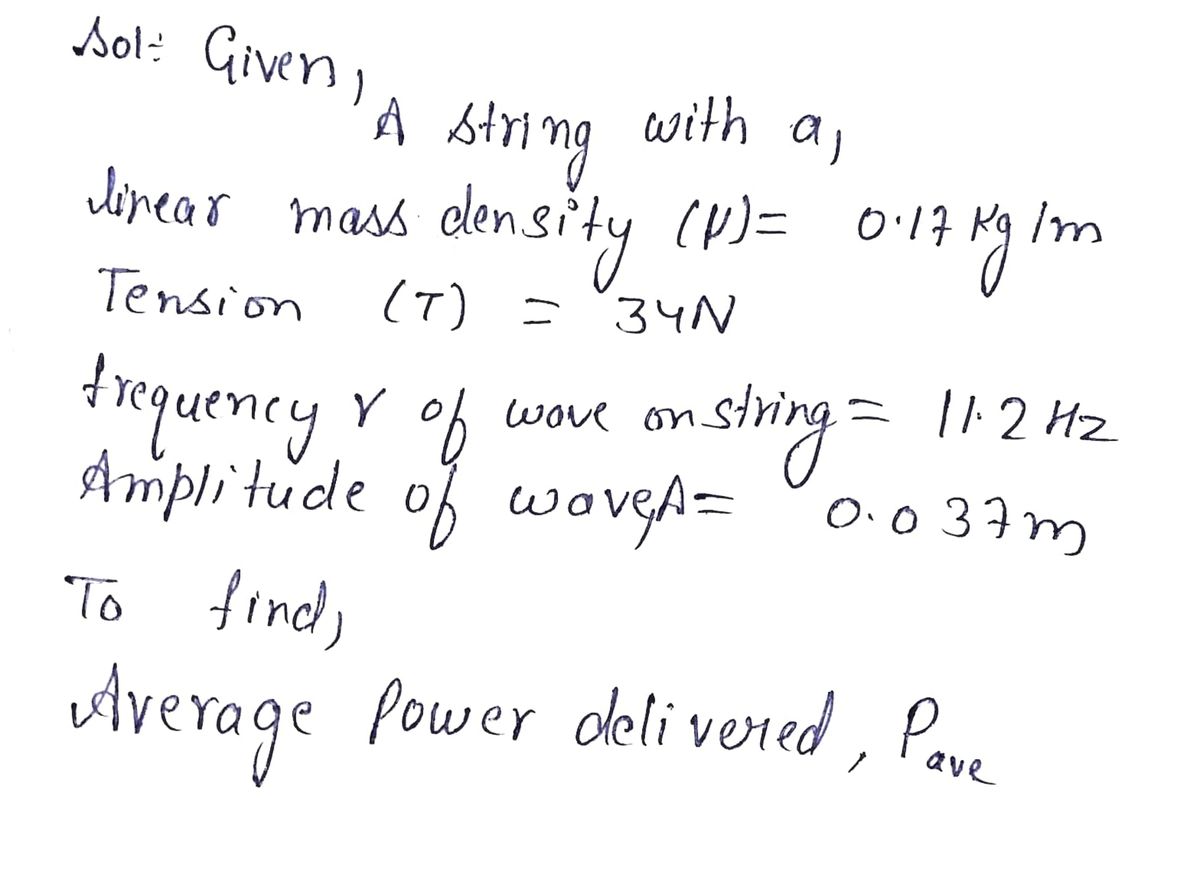 Sol: Given,
A string with a,
linear mass density (μ)= 0.17 Kg/m
Tension (T) = 34N
frequency ν of wave on string = 11.2 Hz
Amplitude of wave,A= 0.037m
To find,
Average Power delivered, Pave